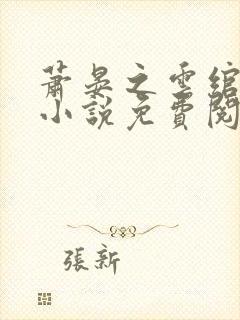 蕭晏之雲綰
小說免費閱
張新